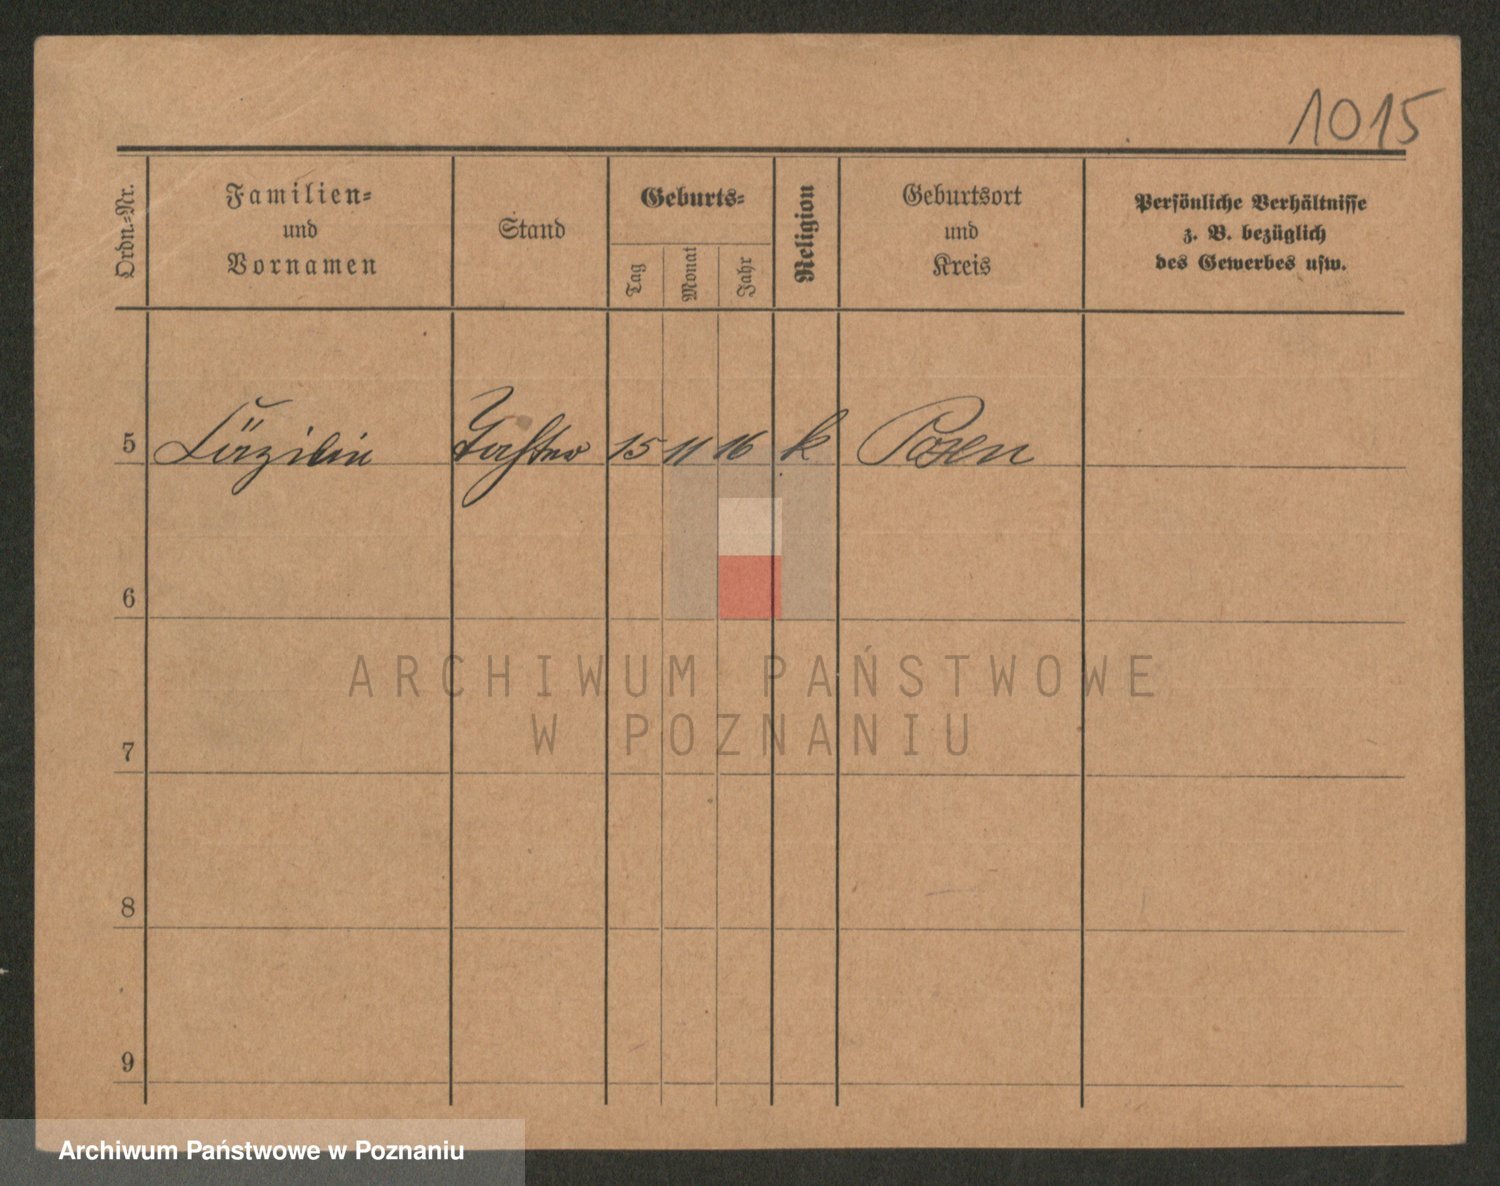 1015
Ordn.-Nr.
Familien-
und
Vornamen
Stand
Geburts-
Tag
Monat
Jahr
Religion
Geburtsort
und
Kreis
Persönliche Verhältnisse
z. B. bezüglich
des Gewerbes usw.
5 Tochter 15 11 16 k Posen
6
ARCHIWUM PAŃSTWOWE
W POZNANIU
7
8
9
Archiwum Państwowe w Poznaniu